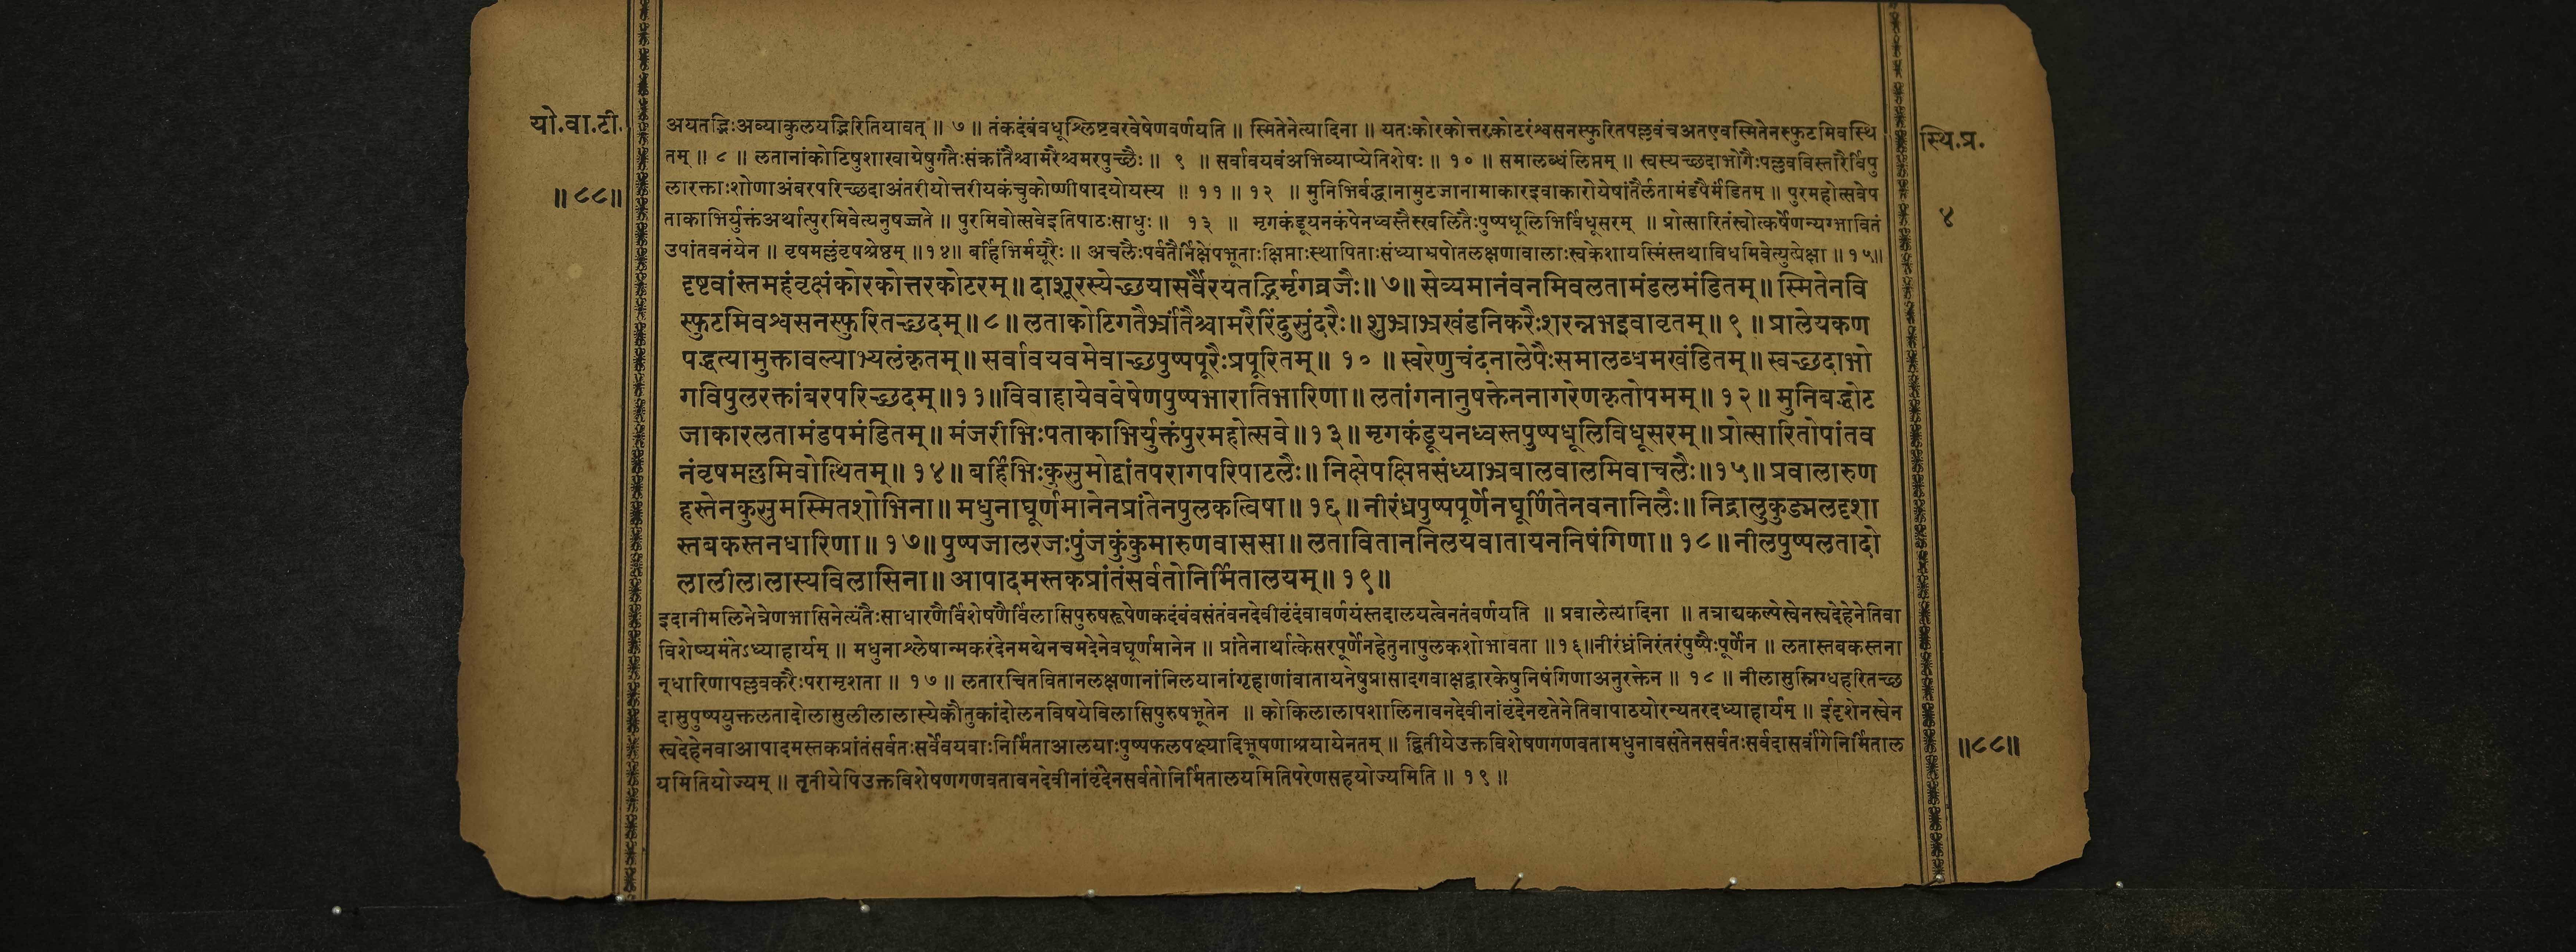 यो.वा.टी.
॥८८॥
अयतद्भिःअव्याकुलयद्भिरितियावत् ॥ ७ ॥ तंकदंबंवधूश्लिष्टवरवेषेणवर्णयति ॥ स्मितेनेत्यादिना ॥ यतःकोरकोत्तरकोटरंश्वसनस्फुरितपल्लवंचअतएवस्मितेनस्फुटमिवस्थि
तम् ॥ ८ ॥ लतानांकोटिषुशाखाग्रेषुगतैःसंक्रांतैश्चामरैश्चमरपुच्छैः ॥ ९ ॥ सर्वावयवंअभिव्याप्येतिशेषः ॥ १० ॥ समालब्धंलिप्तम् ॥ स्वस्यच्छदाभोगैःपल्लवविस्तारैर्विपु
लारक्ताःशोणाअंबरपरिच्छदाअंतरीयोत्तरीयकंचुकोष्णीषादयोयस्य ॥ ११ ॥ १२ ॥ मुनिभिर्बद्धानामुटजानामाकारइवाकारोयेषांतैर्लतामंडपैर्मंडितम् ॥ पुरमहोत्सवेप
ताकाभिर्युक्तंअर्थात्पुरमिवेत्यनुषज्जते ॥ पुरमिवोत्सवेइतिपाठःसाधुः ॥ १३ ॥ मृगकंडूयनकंपेनध्वस्तैस्खलितैःपुष्पधूलिभिर्विधूसरम् ॥ प्रोत्सारितंस्वोत्कर्षेणन्यग्भावितं
उपांतवनंयेन ॥ वृषमल्लंवृषश्रेष्ठम् ॥१४॥ बर्हिभिर्मयूरैः ॥ अचलैःपर्वतैर्निक्षेपभूताःक्षिप्ताःस्थापिताःसंध्याभ्रपोतलक्षणावालाःस्वकेशायस्मिंस्तथाविधमिवेत्युत्प्रेक्षा ॥ १५॥
दृष्टवांस्तमहंवृक्षंकोरकोत्तरकोटरम् ॥ दाशूरस्येच्छयासर्वैरयतद्भिर्मृगव्रजैः ॥ ७ ॥ सेव्यमानंवनमिवलतामंडलमंडितम् ॥ स्मितेनवि
स्फुटमिवश्वसनस्फुरितच्छदम् ॥ ८ ॥ लताकोटिगतैर्भ्रांतैश्चामरैरिंदुसुंदरैः ॥ शुभ्राभ्रखंडनिकरैःशरन्नभइवावृतम् ॥ ९ ॥ प्रालेयकण
पद्धत्यामुक्तावल्याभ्यलंकृतम् ॥ सर्वावयवमेवाच्छपुष्पपूरैःप्रपूरितम् ॥ १० ॥ स्वरेणुचंदनालेपैःसमालब्धमखंडितम् ॥ स्वच्छदाभो
गविपुलरक्तांबरपरिच्छदम् ॥११॥विवाहायेववेषेणपुष्पभारातिभारिणा ॥ लतांगनानुषक्तेननागरेणकृतोपमम् ॥ १२ ॥ मुनिबद्धोट
जाकारलतामंडपमंडितम् ॥ मंजरीभिःपताकाभिर्युक्तंपुरमहोत्सवे ॥१३॥ मृगकंडूयनध्वस्तपुष्पधूलिविधूसरम् ॥ प्रोत्सारितोपांतव
नंवृषमल्लमिवोत्थितम् ॥ १४ ॥ बर्हिभिःकुसुमोद्वांतपरागपरिपाटलैः ॥ निक्षेपक्षिप्तसंध्याभ्रबालवालमिवाचलैः ॥१५॥ प्रवालारुण
हस्तेनकुसुमस्मितशोभिना ॥ मधुनाघूर्णमानेनप्रांतेनपुलकत्विषा ॥ १६ ॥ नीरंध्रपुष्पपूर्णेनघूर्णितेनवनानिलैः ॥ निद्रालुकुड्मलदृशा
स्तबकस्तनधारिणा ॥ १७ ॥ पुष्पजालरजःपुंजकुंकुमारुणवाससा ॥ लताविताननिलयवातायननिषंगिणा ॥ १८ ॥ नीलपुष्पलतादो
लालीलालास्यविलासिना ॥ आपादमस्तकप्रांतंसर्वतोनिर्मितालयम् ॥ १९ ॥
इदानीमलिनेत्रेणभासिनेत्यंतैःसाधारणैर्विशेषणैर्विलासिपुरुषरूपेणकदंबंवसंतंवनदेवीवृंदंवावर्णयंस्तदालयत्वेनतंवर्णयति ॥ प्रवालेत्यादिना ॥ तत्राद्यकल्पेस्वेनस्वदेहेनेतिवा
विशेष्यमंतेऽध्याहार्यम् ॥ मधुनाश्लेषान्मकरंदेनमद्येनचमदेनेवघूर्णमानेन ॥ प्रांतेनार्थात्केसरपूर्णेनहेतुनापुलकशोभावता ॥१६॥नीरंध्रंनिरंतरंपुष्पैःपूर्णेन ॥ लतास्तबकस्तना
न्धारिणापल्लवकरैःपरामृशता ॥ १७ ॥ लतारचितवितानलक्षणानांनिलयानांगृहाणांवातायनेषुप्रासादगवाक्षद्वारकेषुनिषंगिणाअनुरक्तेन ॥ १८ ॥ नीलासुस्निग्धहरितच्छ
दासुपुष्पयुक्तलतादोलासुलीलालास्येकौतुकांदोलनविषयेविलासिपुरुषभूतेन ॥ कोकिलालापशालिनावनदेवीनांवृंदेनवृतेनेतिवापाठयोरन्यतरदध्याहार्यम् ॥ ईदृशेनस्वेन
स्वदेहेनवाआपादमस्तकप्रांतंसर्वतःसर्वेवयवाःनिर्मिताआलयाःपुष्पफलपक्ष्यादिभूषणाश्रयायेनतम् ॥ द्वितीयेउक्तविशेषणगणवतामधुनावसंतेनसर्वतःसर्वदासर्वांगेनिर्मिताल
यमितियोज्यम् ॥ तृतीयेपिउक्तविशेषणगणवतावनदेवीनांवृंदेनसर्वतोनिर्मितालयमितिपरेणसहयोज्यमिति ॥ १९ ॥
स्थि.प्र.
४
॥८८॥